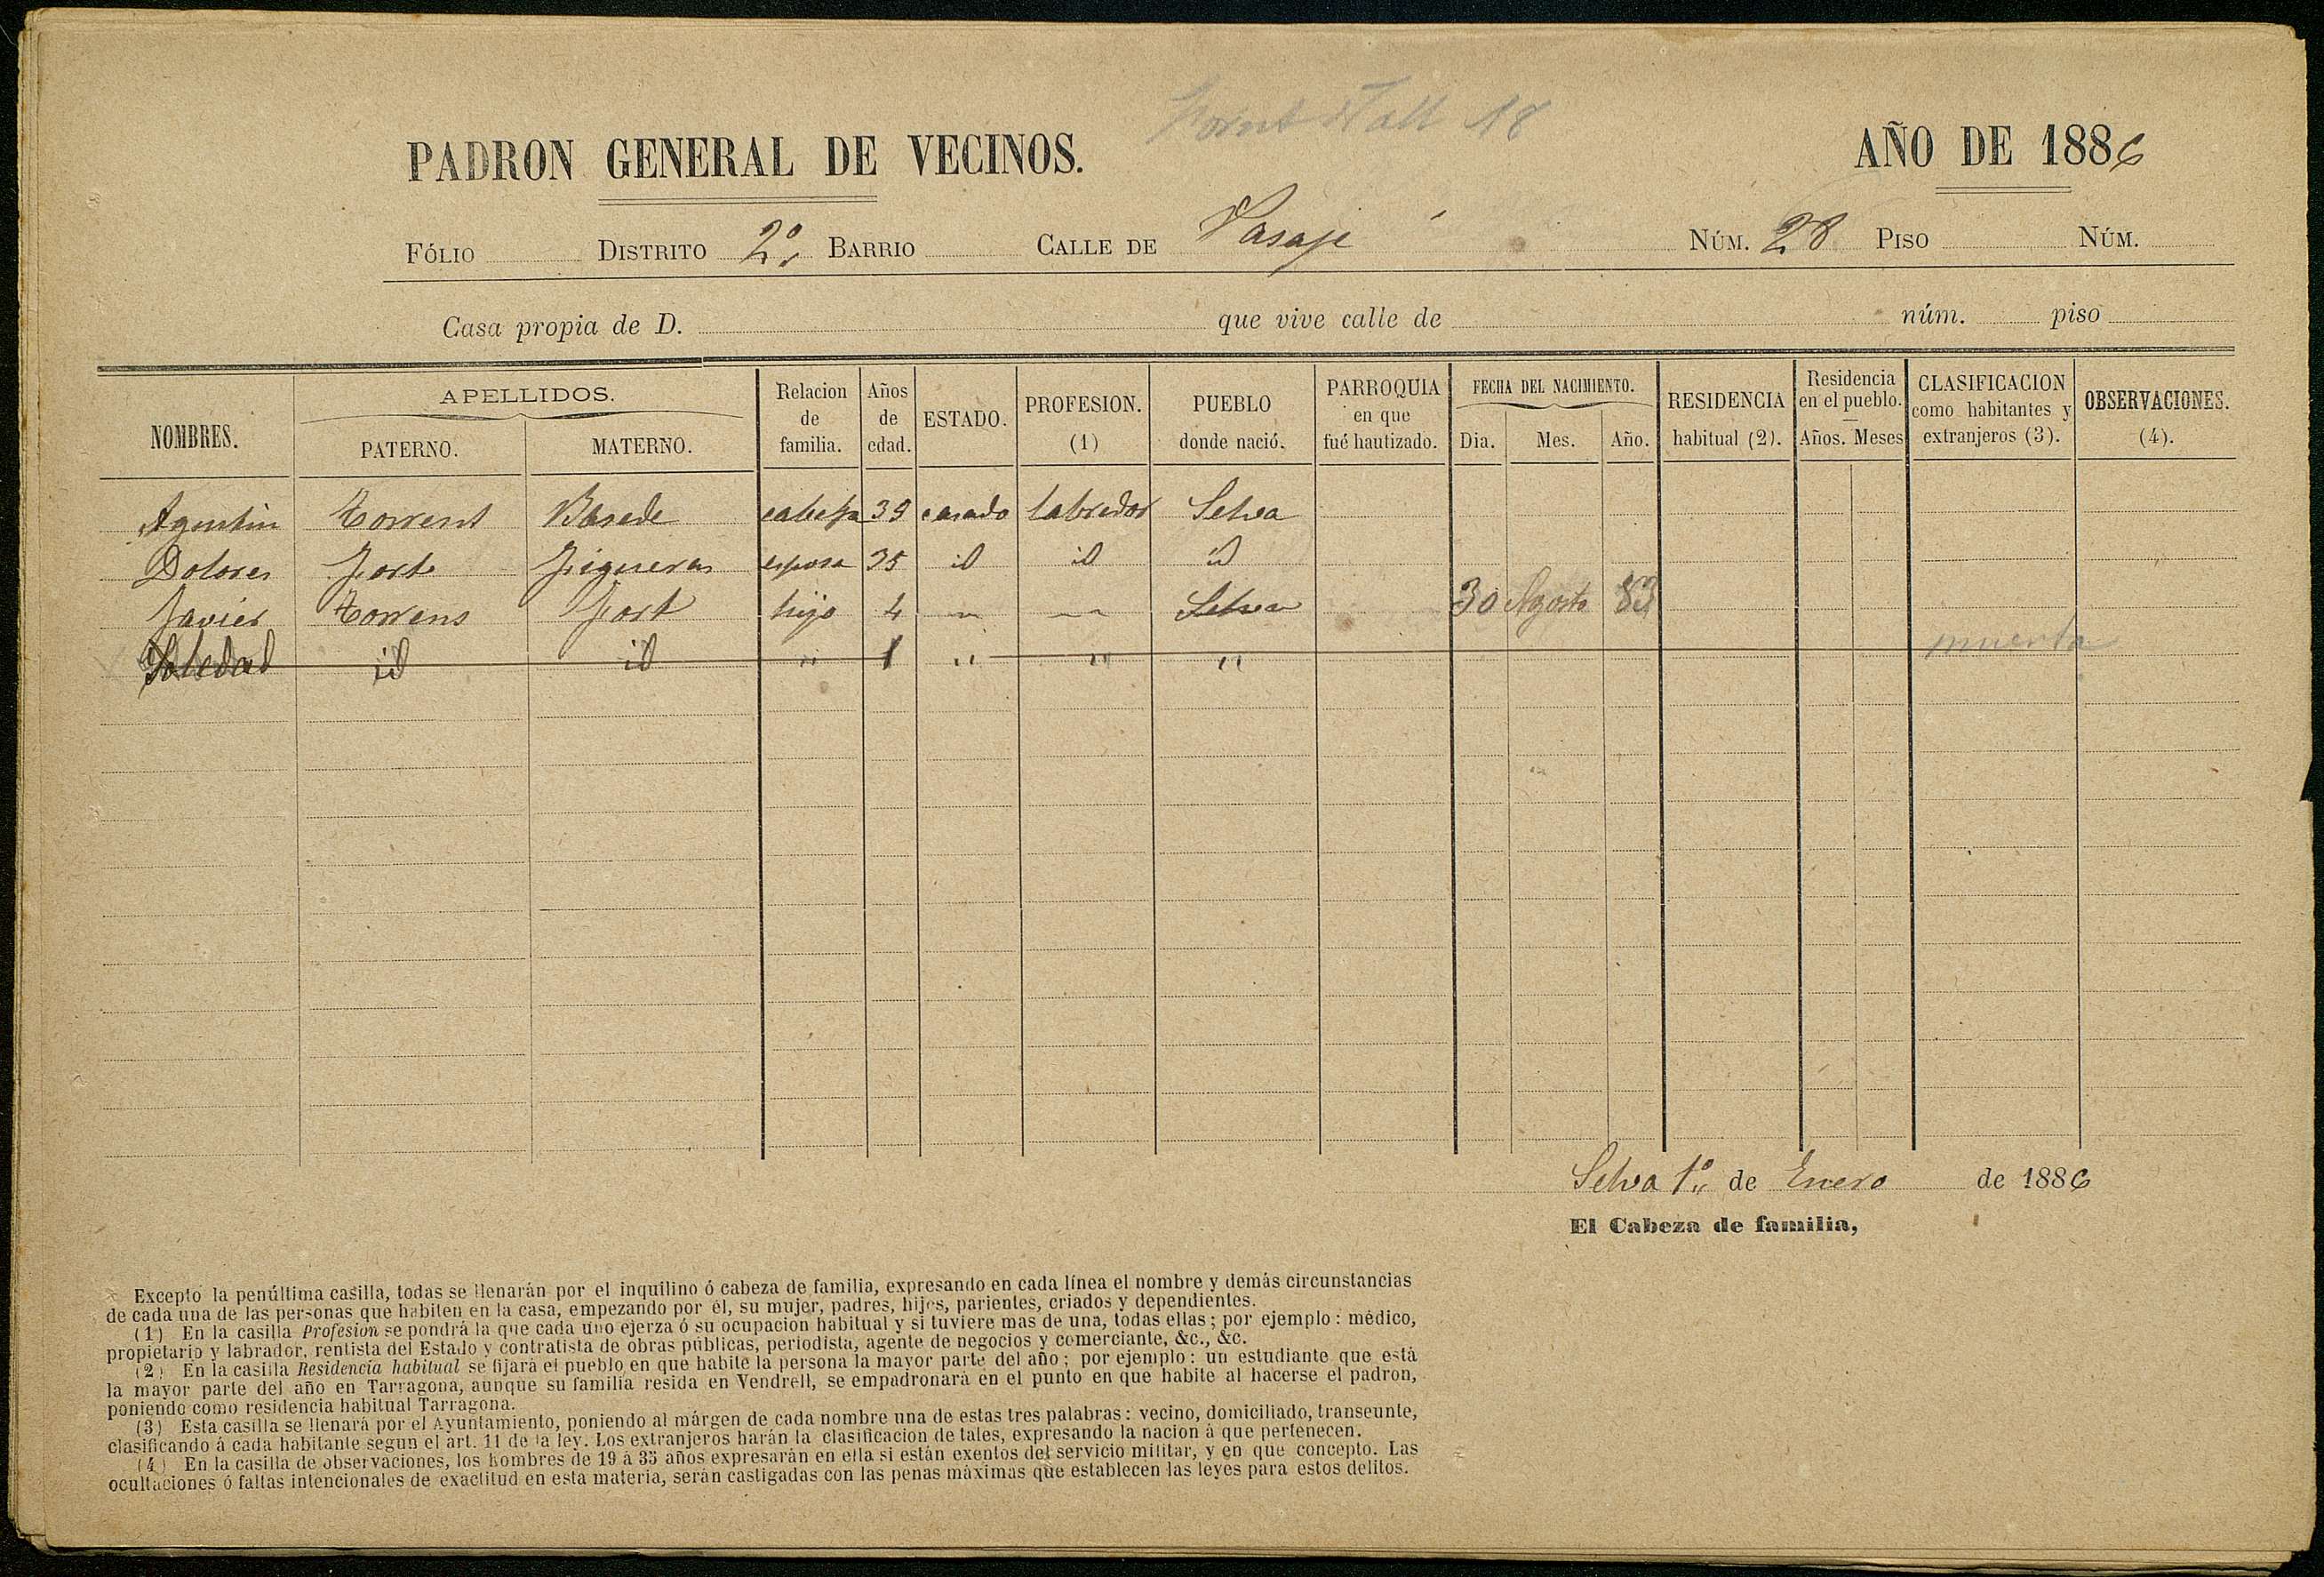 PADRON GENERAL DE VECINOS.
AÑO DE 1886
FÓLIO DISTRITO 2º BARRIO CALLE DE Pasaje NÚM. 28 PISO NÚM.
Casa propia de D. que vive calle de núm. piso
NOMBRES. APELLIDOS. PATERNO. MATERNO. Relacion de familia. Años de edad. ESTADO. PROFESION. (1) PUEBLO donde nació. PARROQUIA en que fué bautizado. FECHA DEL NACIMIENTO. Dia. Mes. Año. RESIDENCIA habitual (2). Residencia en el pueblo. Años. Meses CLASIFICACION como habitantes y extranjeros (3). OBSERVACIONES. (4).
Agustin Torrent cabeza 39 casado labrador Selva
Dolores Fort Figueras esposa 35 id id id
Javier Torrens Fort hijo 4 — — Selva 30 Agosto 83
Soledad id id " 1 " " " muerta
Selva 1º de Enero de 1886
El Cabeza de familia,
Excepto la penúltima casilla, todas se llenarán por el inquilino ó cabeza de familia, expresando en cada línea el nombre y demás circunstancias
de cada una de las personas que habiten en la casa, empezando por él, su mujer, padres, hijos, parientes, criados y dependientes.
(1) En la casilla Profesion se pondrá la que cada uno ejerza ó su ocupacion habitual y si tuviere mas de una, todas ellas; por ejemplo: médico,
propietario y labrador, rentista del Estado y contratista de obras públicas, periodista, agente de negocios y comerciante, &c., &c.
(2) En la casilla Residencia habitual se fijará el pueblo en que habite la persona la mayor parte del año; por ejemplo: un estudiante que está
la mayor parte del año en Tarragona, aunque su familia resida en Vendrell, se empadronará en el punto en que habite al hacerse el padron,
poniendo como residencia habitual Tarragona.
(3) Esta casilla se llenará por el Ayuntamiento, poniendo al márgen de cada nombre una de estas tres palabras: vecino, domiciliado, transeunte,
clasificando á cada habitante segun el art. 11 de la ley. Los extranjeros harán la clasificacion de tales, expresando la nacion á que pertenecen.
(4) En la casilla de observaciones, los hombres de 19 á 35 años expresarán en ella si están exentos del servicio militar, y en que concepto. Las
ocultaciones ó faltas intencionales de exactitud en esta materia, serán castigadas con las penas máximas que establecen las leyes para estos delitos.